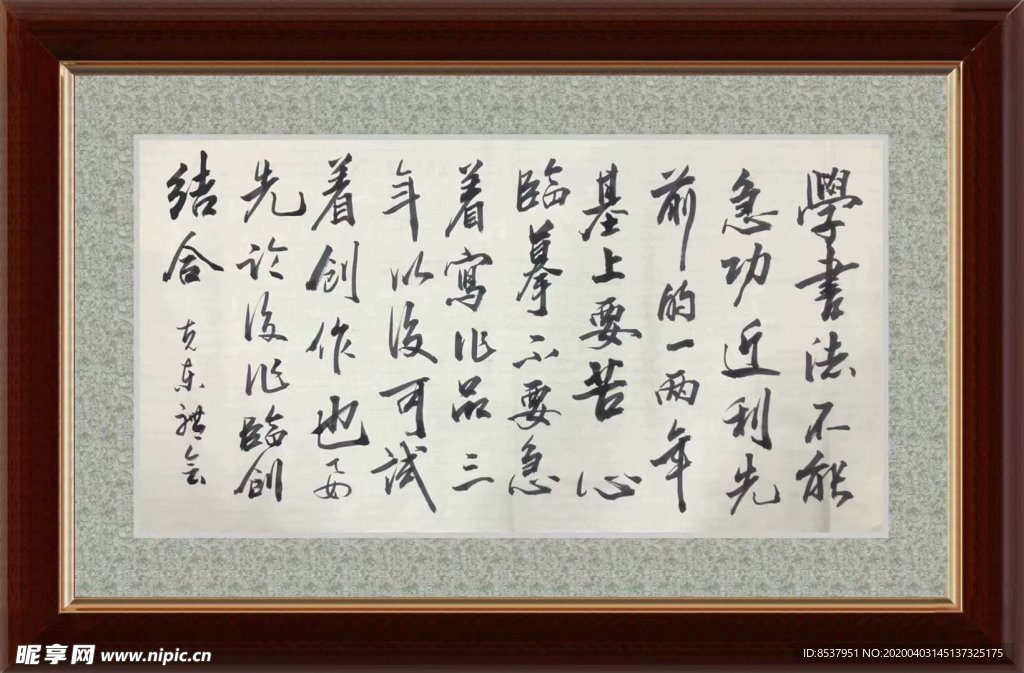 學書法不能
急功近利先
前的一两年
基上要苦心
臨摹不要急
着寫作品三
年以後可試
着创作也要
先论後作臨创
结合
克东禮会
昵享网 www.nipic.cn
ID:8537951 NO:20200403145137325175